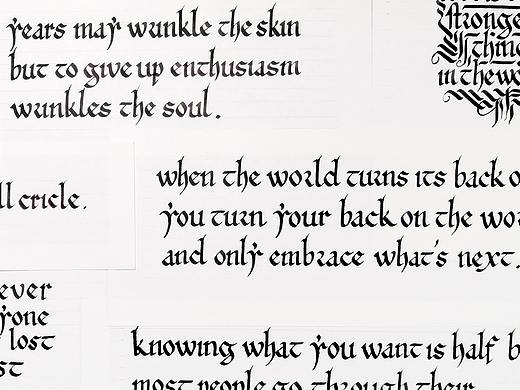 years may wrinkle the skin
but to give up enthusiasm
wrinkles the soul.
Stronge
thing
in the wo
ll cricle.
when the world turns its back o
you turn your back on the wor
and only embrace what's next.
ever
yone
lost
st
knowing what you want is half b
most people go through their